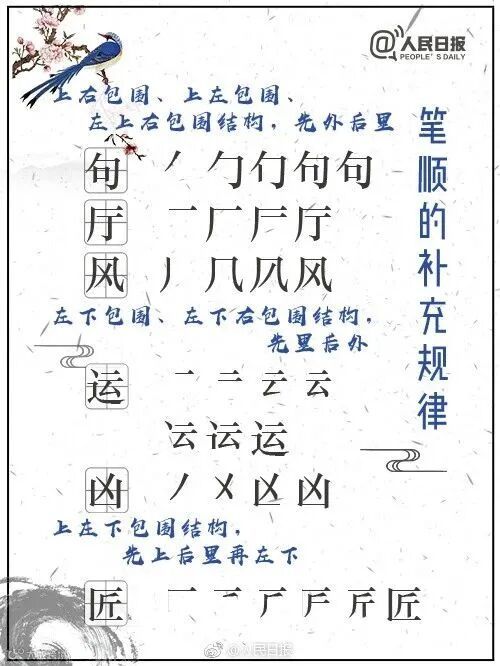 @人民日报
PEOPLE'S DAILY
笔顺的补充规律
上右包围、上左包围、
左上右包围结构，先外后里
句 丿 勹 勹 句 句
厅 一 厂 厂 厅
风 丿 几 凡 风
左下包围、左下右包围结构，
先里后外
运 一 二 云 云
云 运 运
凶 丿 乂 凶 凶
上左下包围结构，
先上后里再左下
匠 一 二 斤 匠
@人民日报